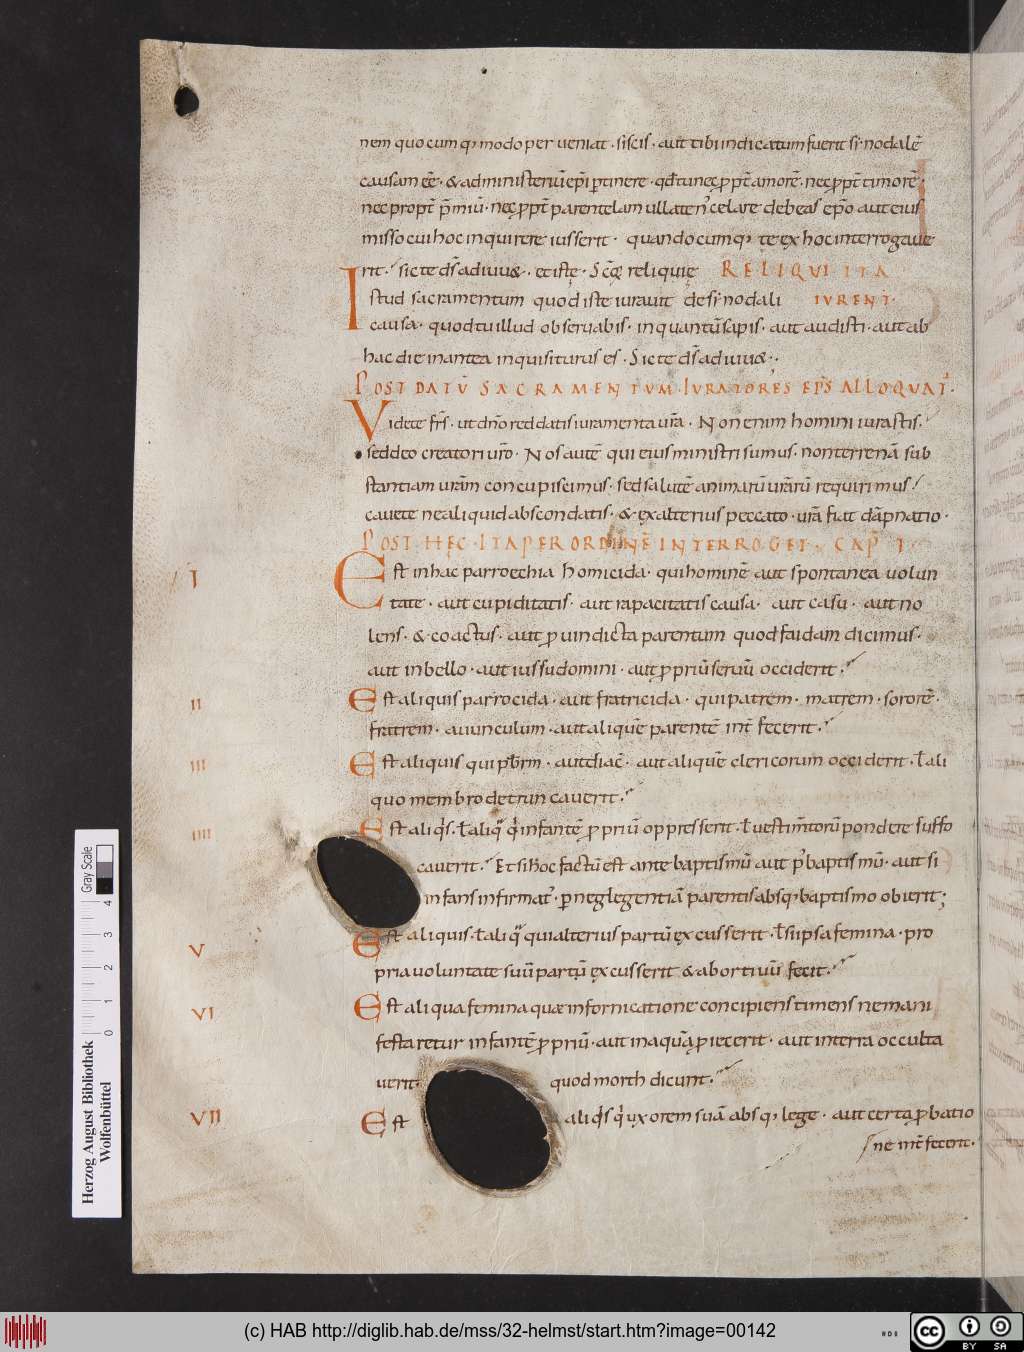 nem quocumq; modo perueniat · siscis · aut tibi indicatum fuerit sinodalē
causam eē · & ad ministeriū epi ptinere · qđ tu neq; ppt̄ amorē · neq; ppt̄ timorē ·
nec propt̄ p̄miū · neq; ppt̄ parentelam ullaten celare debeas epo aut eius
misso cui hoc inquirere iusserit · quandocumq; te ex hoc interrogaue
rit · sic te dš adiuu& · et istę · Scōꝝ reliquię RELIQUI ITA
Istud sacramentum quod iste iurauit de sinodali IURENT ·
causa · quod tu illud obseruabis · in quantū sapis · aut audisti · aut ab
hac die in antea inquisiturus es · Sic te dš adiuu& ·
POST DATŪ SACRAMENTUM · IURATORES EPS ALLOQUAT ·
Videte frš · ut dno reddatis iuramenta urā · Non enim homini iurastis ·
sed deo creatori uro · Nos autē qui eius ministri sumus · non terrenā sub
stantiam urām concupiscimus · sed salutē animarū urārū requirimus ·
cauete ne aliquid abscondatis · & ex alterius peccato · urā fiat dāpnatio ·
POST HĘC · ITA PER ORDINĒ INTERROGET · CAP I
I Est in hac parroechia homicida · qui hominē aut spontanea uolun
tate · aut cupiditatis · aut rapacitatis causa · aut casu · aut no
lens · & coactus · aut p uindicta parentum quod faidam dicimus ·
aut in bello · aut iussu domini · aut ppriū seruū occiderit ·
II Est aliquis parrocida · aut fratricida · qui patrem · matrem · sororē ·
fratrem · auunculum · aut aliquē parentē int fecerit ·
III Est aliquis qui pbrm · aut diac̄ · aut aliquē clericorum occiderit · ł ali
quo membro detruncauerit ·
IIII Est aliqs · ł aliq̄ q infantē p priū oppresserit · ł uestimtorū pondere suffo
cauerit · Et si hoc factū est ante baptismū aut p baptismū · aut si
infans infirmat · p neglegentiā parentis absq; baptismo obierit ;
V Est aliquis · ł aliq̄ qui alterius partū excusserit · ł si ipsa femina · pro
pria uoluntate suū partū excusserit & abortiuū fecit ·
VI Est aliqua femina quæ in fornicatione concipiens timens ne mani
festaretur infantē p priū · aut in aquā piecerit · aut in terra occulta
uerit · quod morth dicunt ·
VII Est aliqs q uxorem suā absq; lege · aut certa pbatio
ne int fecerit ·
Herzog August Bibliothek
Wolfenbüttel
0 1 2 3 4
Gray Scale
(c) HAB http://diglib.hab.de/mss/32-helmst/start.htm?image=00142
cc BY SA